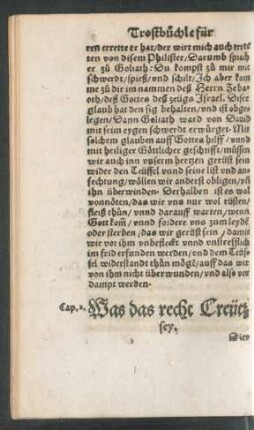 Trostbüchle für
ren errette er hat/der wirt mich auch erret
ten von disem Philister/Darumb sprich
er zů Goliath: Du kompst zů mir mit
schwerdt/spieß/vnd schilt/Ich aber kom
me zů dir im nammen deß Herrn Zeba
oth/deß Gottes deß zeügs Israel. Diser
glaub hat den sig behalten/vnd ist obge
legen/Dann Goliath ward von Dauid
mit seim eygen schwerdt erwürget. Mit
solchem glauben auff Gottes hilff/vnnd
mit heiliger Göttlicher geschrifft/müssen
wir auch inn vnserm hertzen gerüst sein
wider den Teüffel vnnd seine list vnd an
fechtung/wöllen wir anderst obligen/vñ
ihn überwinden. Derhalben ist es wol
vonnöten/das wir vns nur wol rüsten/
fleiß thün/vnnd darauff warten/wenn
Gott kom̃/vnnd fordere vns zum leyden
oder sterben/das wir gerüst sein/damit
wir vor ihm vnbefleckt vnnd vnstrefflich
im frid erfunden werden/vnd dem Teüf
fel widerstandt thün mögē/auff das wir
von ihm nicht überwunden/vnd also ver
dampt werden.
Cap.2. Was das recht Creütz
sey.